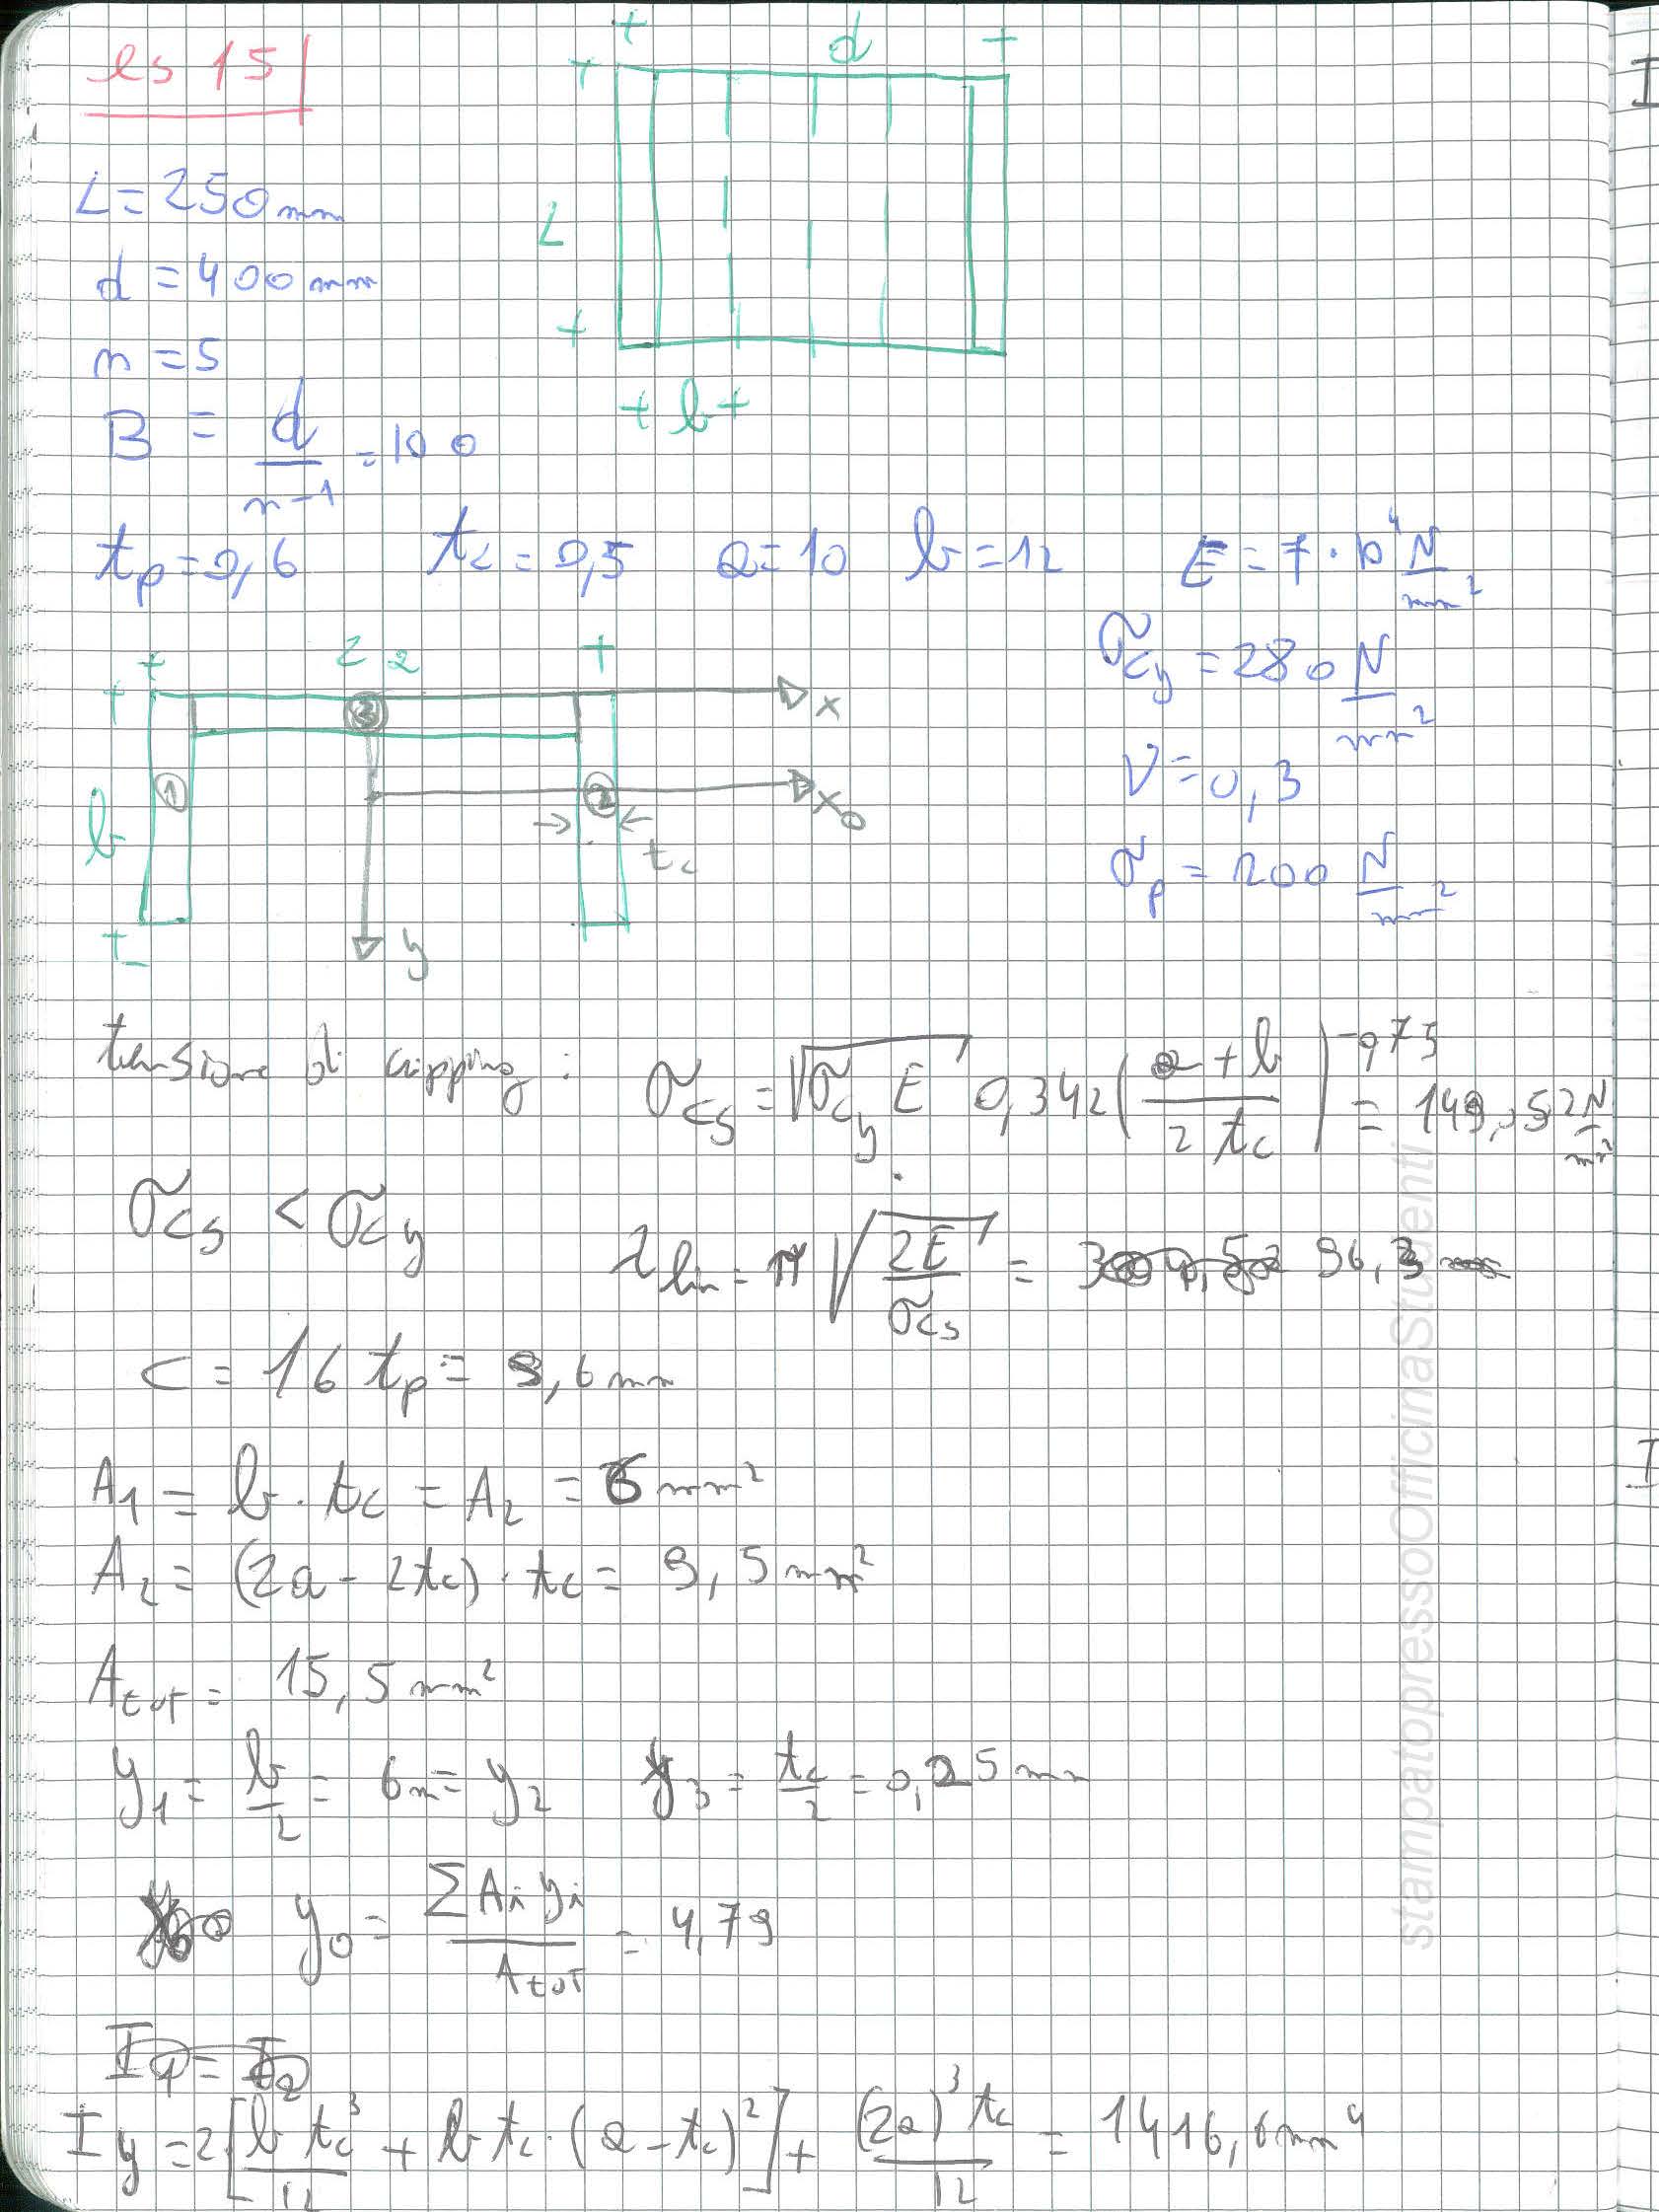 es 15
d
L = 250 mm
L
d = 400 mm
n = 5
b
B = d/(n-1) = 100
tp = 0,6 tc = 0,5 a = 10 b = 12 E = 7·10^4 N/mm²
σcy = 280 N/mm²
2a
3 x
ν = 0,3
1 2 x0
b
tc
σp = 200 N/mm²
y
tensione di cripping : σcs = √(σcy E) 0,342 ((a+b)/(2 tc))^-0,75 = 149,52 N/mm²
σcs < σcy λlim = π √(2E/σcs) = 96,3
c = 16 tp = 9,6 mm
A1 = b · tc = A2 = 6 mm²
A2 = (2a - 2tc) · tc = 9,5 mm²
Atot = 15,5 mm²
y1 = b/2 = 6 m = y2 y3 = tc/2 = 0,25 mm
y0 = ΣAi yi / Atot = 4,79
I1 = I2
Iy = 2[b tc³/12 + b tc · (a - tc)²] + (2a)³ tc/12 = 1416,6 mm⁴
stampatopressoOfficinaStudenti